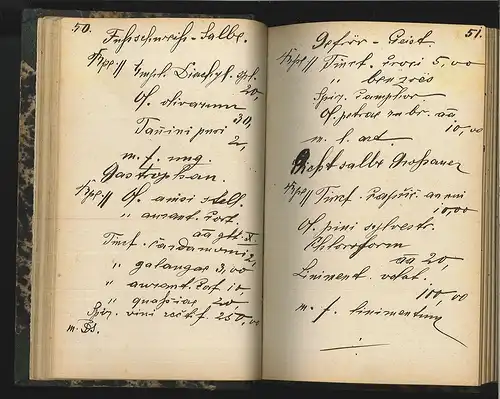 50.
Fußschweiß-Salbe.
Rpe// Empl. Diachyl. spl.
20,
Ol. olivarum
30,
Tanini puri
2,
m. f. ung.
Gastrophan.
Rpe// Ol. anisi stell.
" aurant. cort.
aa gtt. X.
Tinct. cardamomi 2,
" galangae 3,00
" aurant. cort 10,
" quassiae 20
Spir. vini rectf. 250,00
m. Ds.
51.
Gefrör-Geist.
Rpe// Tinct. croci 5,00
" benzoes
Spir. camphor.
Ol. petrae rubr. aa
10,00
m. l. art.
Gichtsalbe
Rpe// Tinct. capsic. annui
10,00
Ol. pini sylvestr.
Chloroform
aa 20,
Liniment. volat.
100,00
m. f. linimentum